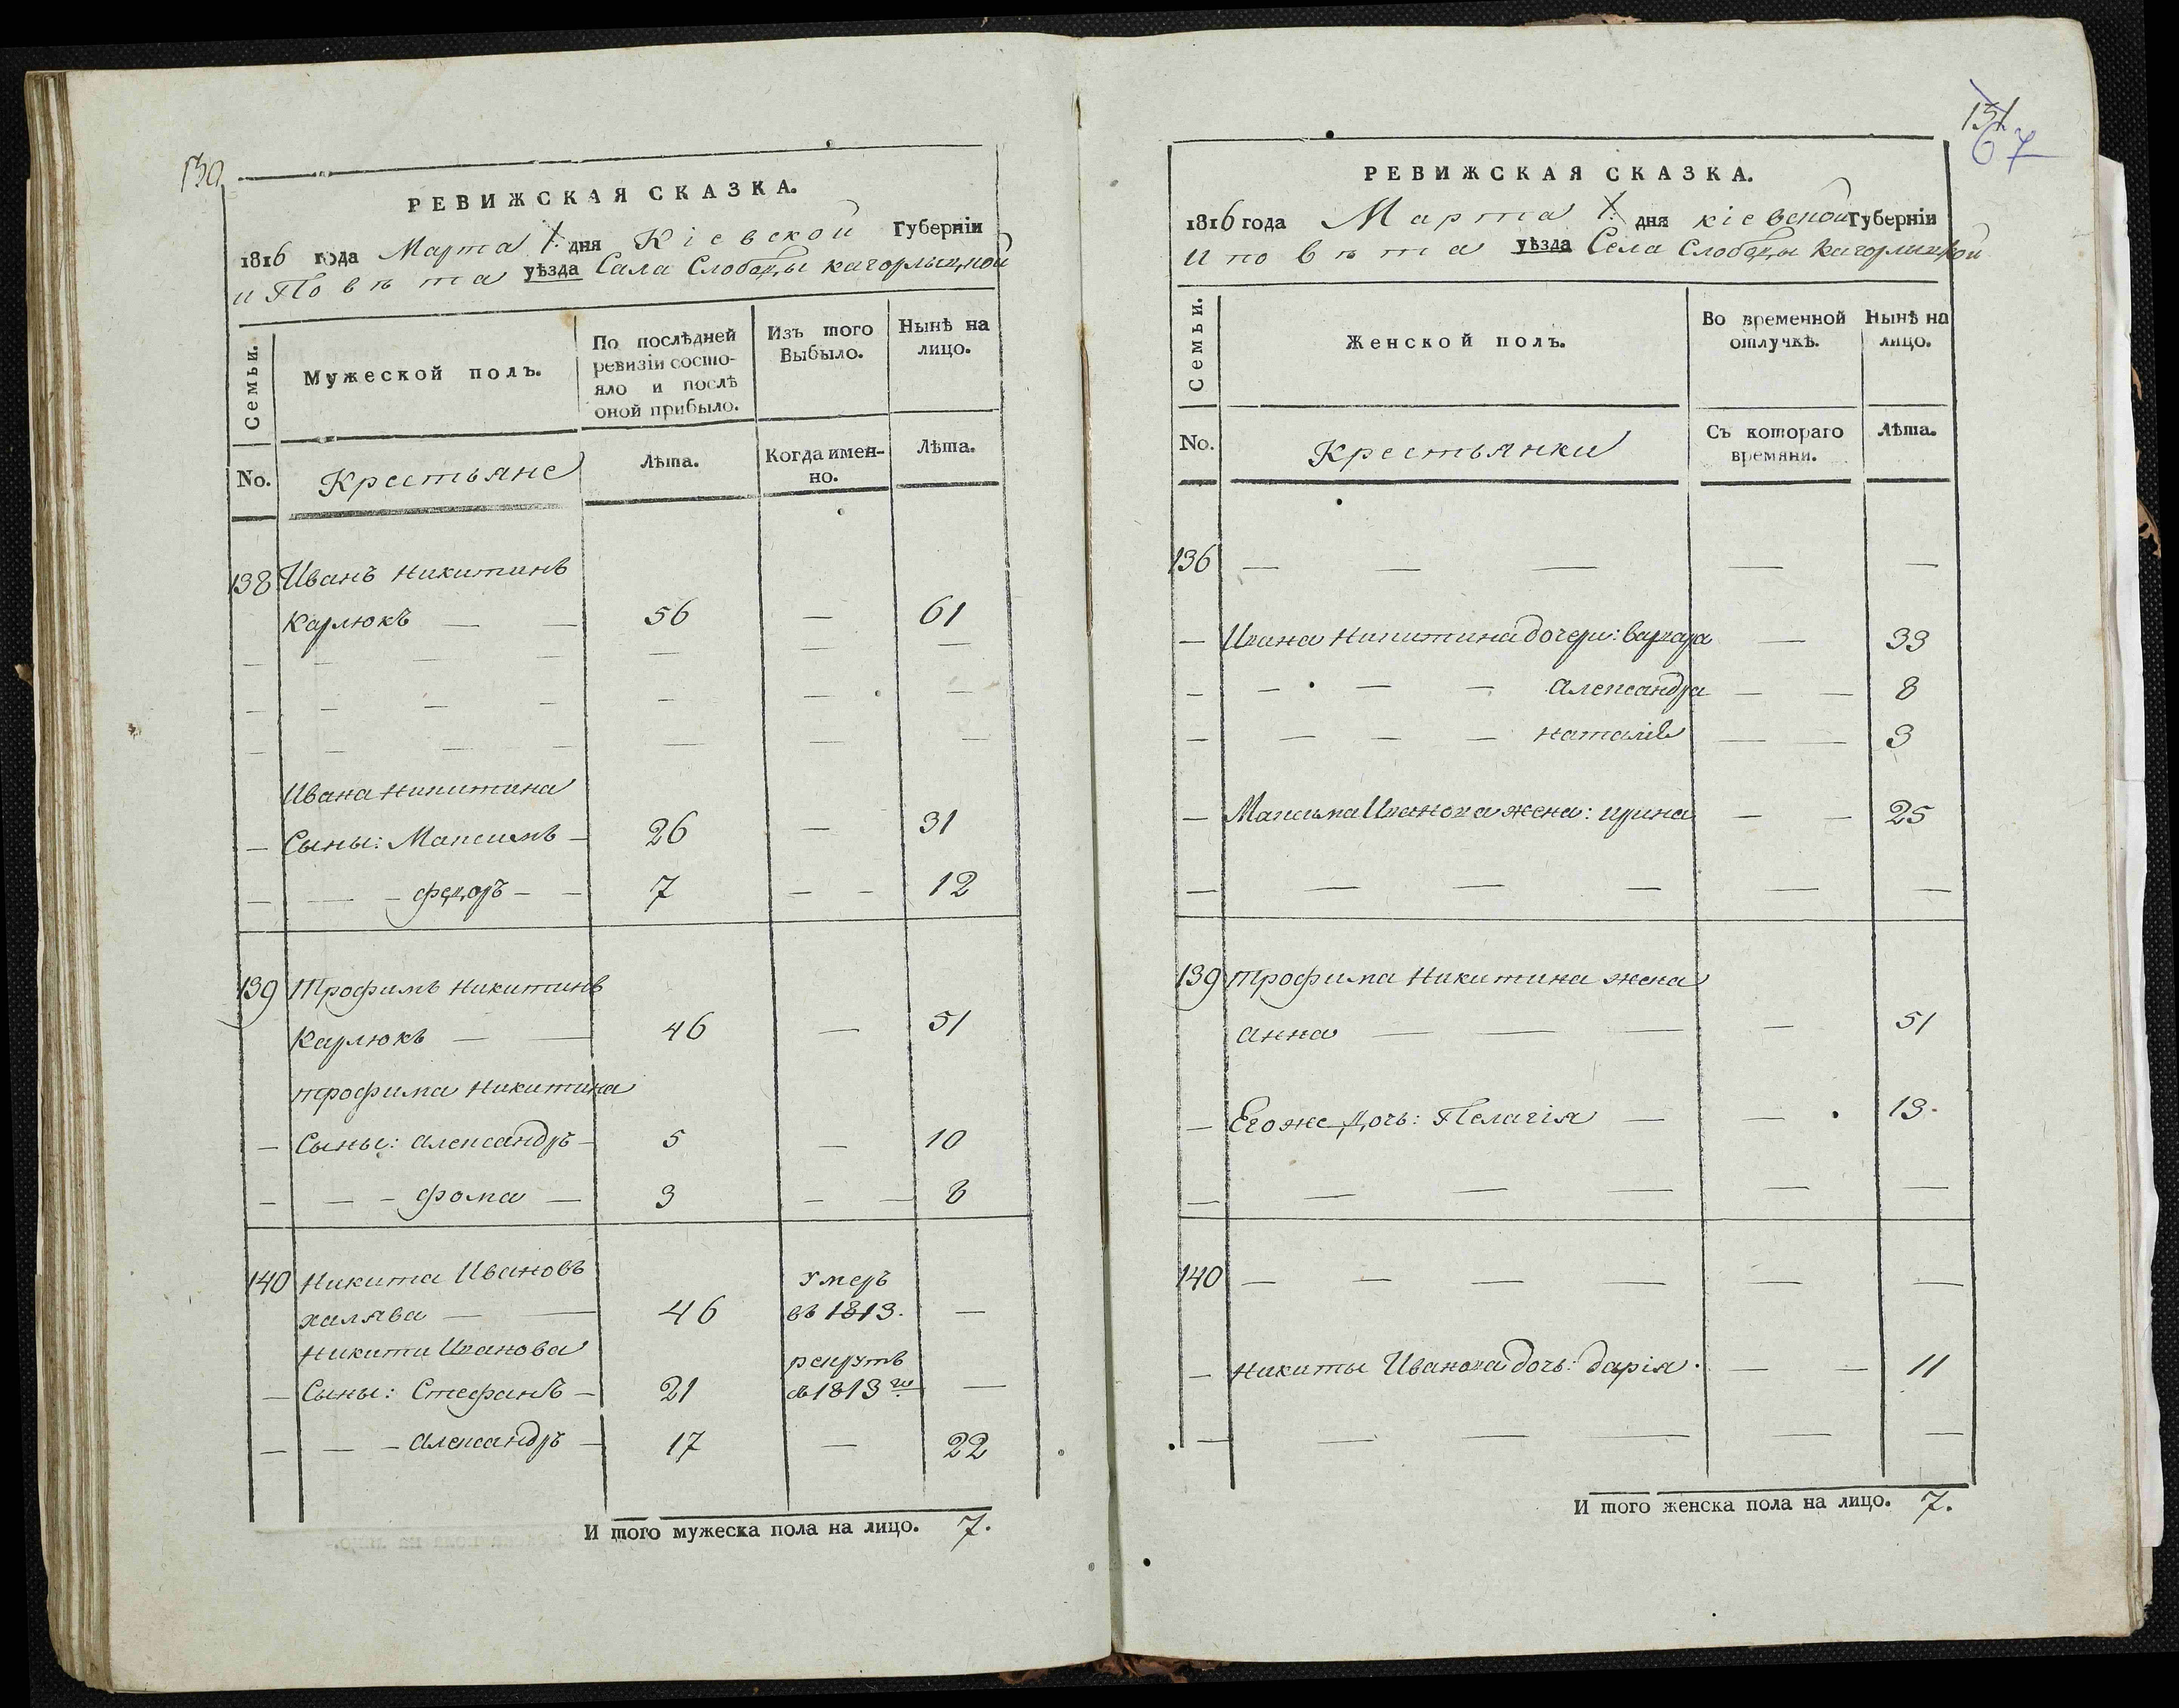 130
РЕВИЖСКАЯ СКАЗКА.
1816 года Марта 1. дня Кіевской Губерніи
и Повѣта уѣзда Села Слободы кагорлыцкой
Семьи.
Мужеской полъ.
По послѣдней ревизіи состо-
яло и послѣ
оной прибыло.
Изъ того
Выбыло.
Нынѣ на
лицо.
No.
Крестьяне
Лѣта.
Когда имен-
но.
Лѣта.
138 Иванъ никитинъ
Карлюкъ — — 56 — 61
Ивана никитина
— Сыны: Максимъ — 26 — 31
— — — федоръ — — 7 — — 12
139 Трофимъ никитинъ
Карлюкъ — — 46 — 51
трофима никитина
— Сыны: александръ — 5 — 10
— — — фома — 3 — — 8
140 Никита Ивановъ Умеръ
халява — — 46 въ 1813. —
никити Иванова рекрутъ
— Сыны: Стефанъ — 21 въ 1813 го —
— — — александръ — 17 — 22
И того мужеска пола на лицо. 7.
131
67
РЕВИЖСКАЯ СКАЗКА.
1816 года Марта 1. дня кіевской Губерніи
и повѣта уѣзда Села Слободы кагорлыцкой
Семьи.
Женской полъ.
Во временной
отлучкѣ.
Нынѣ на
лицо.
No.
Крестьянки
Съ котораго
времяни.
Лѣта.
136 — — — — —
— Ивана никитина дочери: варвара — 33
— — — — александра — — 8
— — — — — наталія — — 3
— Максима Иванова жена: ирина — — 25
— — — — — —
139 трофима никитина жена
анна — — — — 51
— Егоже дочь: Пелагія — — 13.
— — — — — —
140 — — — — — —
— никиты Иванова дочь: дарія. — — 11
— — — — — —
И того женска пола на лицо. 7.